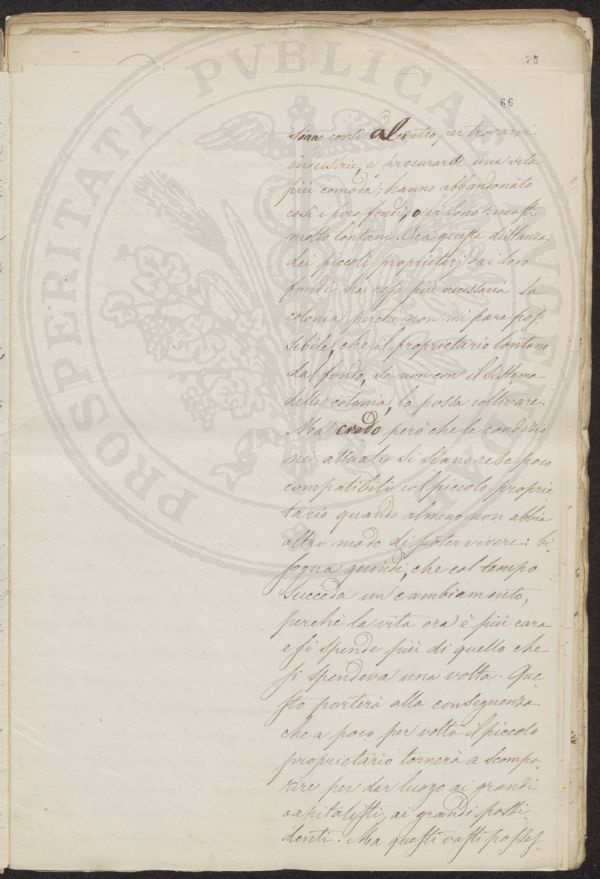 PROSPERITATI PVBLICAE AVGENDAE
75
66
siano corsi al, per trovarvi
industrie, e procurarsi una vita
più comoda; hanno abbandonato
così i loro fondi, o si sono rimasti
molto lontani. Ora questa distanza
dei piccoli proprietarj dai loro
fondi ha reso più necessaria la
colonia perchè non mi pare pos-
sibile, che il proprietario lontano
dal fondo, se non con il sistema
della colonia, lo possa coltivare.
Ma credo però che le condizio
ni attuali si siano rese poco
compatibili col piccolo proprie
tario quando almeno non abbia
altro modo di poter vivere: bi
sogna quindi, che col tempo
succeda un cambiamento,
perchè la vita ora è più cara
e si spende più di quello che
si spendeva una volta. Que
sto porterà alla conseguenza
che a poco per volta il piccolo
proprietario tornerà a scompa
rire per dar luogo ai grandi
capitalisti, ai grandi possi
denti. Ma questi vasti posses-